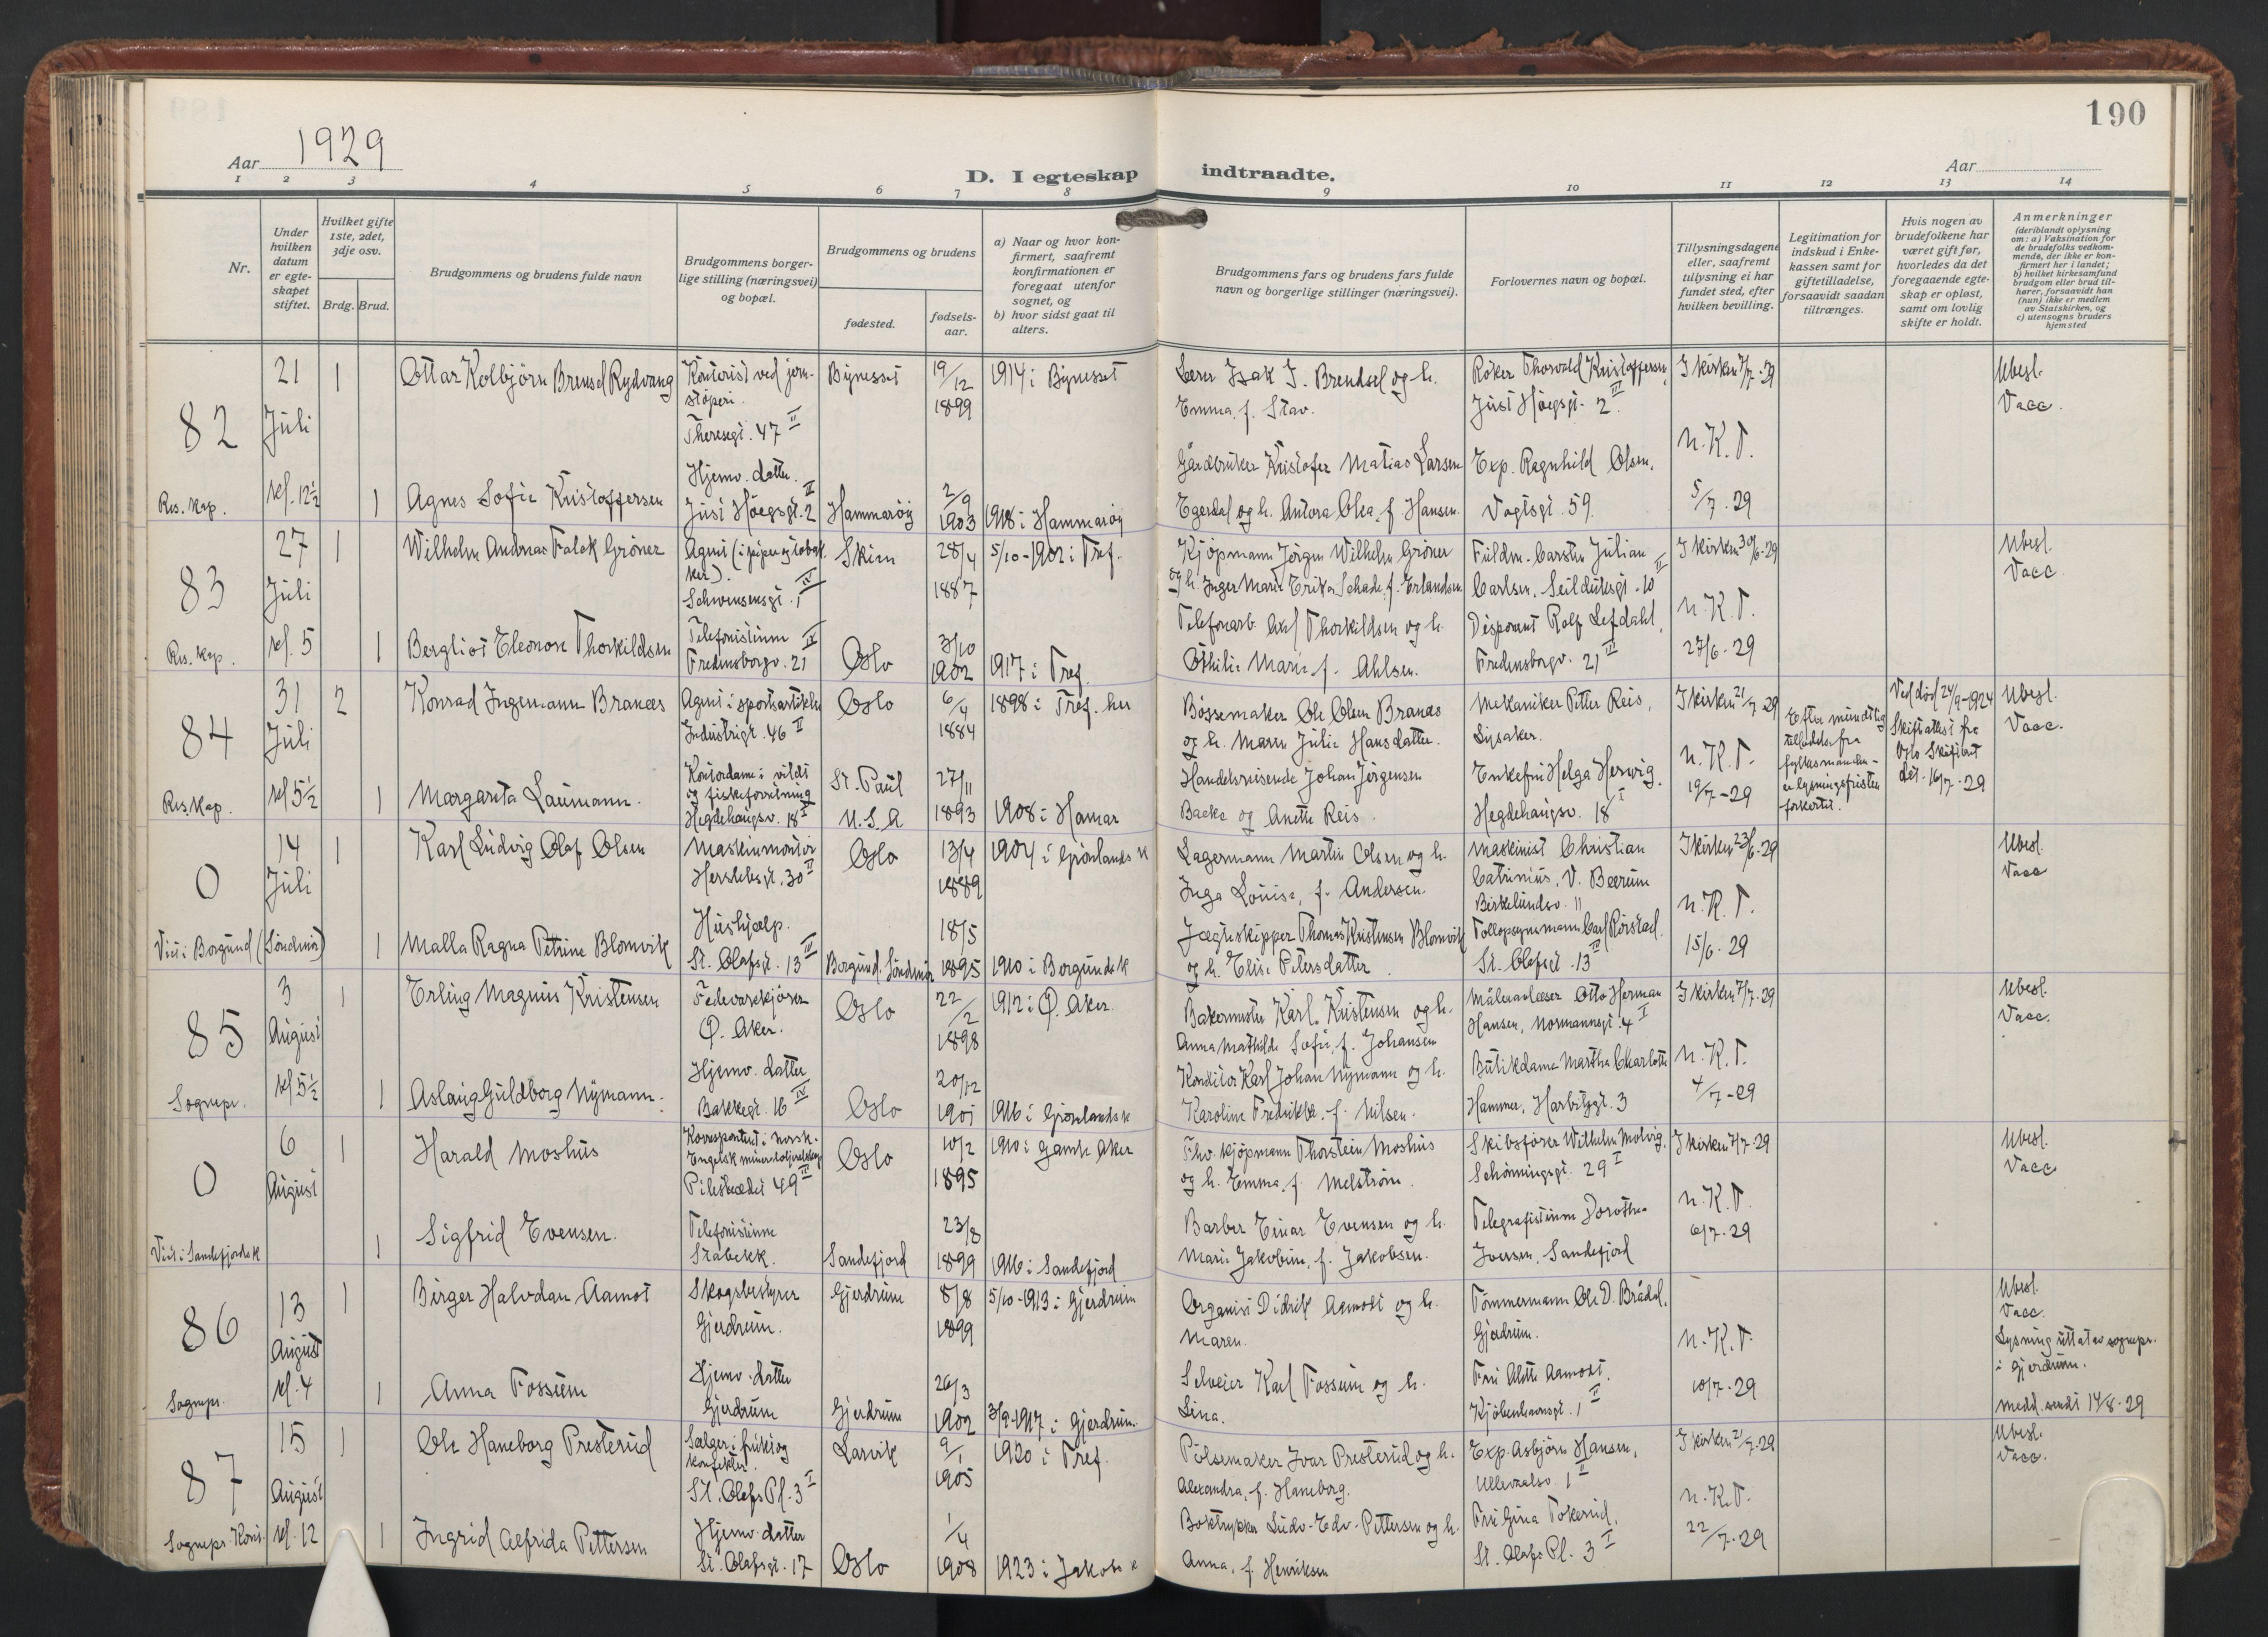 190
Aar 1929
D. I egteskap indtraadte.
Aar
1 2 3 4 5 6 7 8 9 10 11 12 13 14
Nr.
Under hvilken datum er egte-skapet stiftet.
Hvilket gifte 1ste, 2det, 3dje osv.
Brdg. Brud.
Brudgommens og brudens fulde navn
Brudgommens borger-lige stilling (næringsvei) og bopæl.
Brudgommens og brudens
fødested.
fødsels-aar.
a) Naar og hvor kon-firmert, saafremt konfirmationen er foregaat utenfor sognet, og
b) hvor sidst gaat til alters.
Brudgommens fars og brudens fars fulde navn og borgerlige stillinger (næringsvei).
Forlovernes navn og bopæl.
Tillysningsdagene eller, saafremt tillysning ei har fundet sted, efter hvilken bevilling.
Legitimation for indskud i Enke-kassen samt for giftetilladelse, forsaavidt saadan tiltrænges.
Hvis nogen av brudefolkene har været gift før, hvorledes da det foregaaende egte-skap er opløst, samt om lovlig skifte er holdt.
Anmerkninger (deriblandt oplysning om: a) Vaksination for de brudefolks vedkom-mende, der ikke er kon-firmert her i landet; b) hvilket kirkesamfund brudgom eller brud til-hører, forsaavidt han (hun) ikke er medlem av Statskirken, og c) utensogns bruders hjemsted
82
Res. kap.
21 Juli kl. 12½
1 Ottar Kolbjörn Brensel Rydvang
Kontorist ved jern-støperi. Theresegt. 47 II
Bynesset
19/12 1899
1914 i Bynesset
Lærer Isak J. Brendsel og h. Emma, f. Stav.
Røker Thorvald Kristoffersen, Just Høegsgt. 2 III
I kirken 7/7-29
Ubesl. Vacc.
1 Agnes Sofie Kristoffersen
Hjemv. datter. Just Høegsgt. 2 II
Hammarøy
2/9 1903
1918 i Hammarøy
Gårdbruker Kristofer Matias Larsen Egerdal og h. Antora Olea, f. Hansen.
Exp. Ragnhild Olsen, Vogtsgt 59.
N.K.T. 5/7-29
83
Res. kap.
27 Juli kl. 5
1 Wilhelm Andreas Falck Gröner
Schwensensgt. 1 IV
Skien
28/4 1887
5/10-1902 i Tref.
Kjöpmann Jörgen Wilhelm Gröner og h. Inger Marie Erika Schade, f. Erlandsen.
Fuldm. Carsten Julian Carlsen, Seilduksgt. 10 II
I kirken 30/6-29
Ubesl. Vacc
1 Bergliot Eleonore Thorkildsen
Telefonistinne Fredensborgv. 21 IV
Oslo
3/10 1902
1917 i Tref.
Telefonarb. Axel Thorkildsen og h. Othilie Marie f. Ahlsen.
Disponent Rolf Lefdahl, Fredensborgv. 21 III
N.K.T. 27/6-29
84
Res. kap.
31 Juli kl 5½
2 Konrad Ingemann Branæs
Agent i sportsartikler Industrigt. 46 II
Oslo
6/4 1884
1898 i Tref. her
Bössemaker Ole Olsen Branæs og h. Maren Julie Hansdatter.
Mekaniker Petter Reis, Lysaker.
I kirken 21/7-29
Efter mundtlig tilladelse fra fylkesmanden er lysningsfristen forkortet.
Ved död 24/9-1924 Skifteattest fra Oslo Skifterett dat. 16/7-29
Ubesl. Vacc.
1 Margareta Laumann.
Kontordame i vildt og fiskeforretning Hegdehaugsv. 18 I
St. Paul U.S.A
27/11 1893
1908 i Hamar
Handelsreisende Johan Jörgensen Backe og Anette Reis.
Enkefru Helga Herwig, Hegdehaugsv. 18 I
N.K.T. 19/7-29
0
Viet i Borgund (Söndmör)
14 Juli
1 Karl Ludvig Olaf Olsen
Maskinmontör Herslebsgt. 30 II
Oslo
13/4 1889
1904 i Grönlands k
Lagermann Martin Olsen og h. Inga Louise, f. Andersen
Maskinist Christian Catrinius, V. Bærum Birkelundsv. 11
I kirken 23/6-29
Ubesl. Vacc
1 Malla Ragna Petrine Blomvik
Hushjælp. St. Olafsgt. 13 IV
Borgund. Söndmör
18/5 1895
1910 i Borgunds k
Jægteskipper Thomas Kristensen Blomvik og h. Elise Petersdatter.
Tollopsynsmann Carl Rörstad. St. Olafsgt. 13 IV
N.K.T. 15/6-29
85
Sognepr.
3 August kl 5½
1 Erling Magnus Kristensen
Fedevarekjører Ø. Aker.
Oslo
22/2 1898
1912 i Ø. Aker.
Bakermester Karl Kristensen og h. Anna Mathilde Sofie, f. Johansen
Måleravleser Otto Herman Hansen, Normannsgt. 4 I
I kirken 7/7-29
Ubesl. Vacc.
1 Aslaug Guldborg Nymann.
Hjemv. datter Bakkegt. 16 IV
Oslo
20/12 1901
1916 i Grönlands k
Konditor Karl Johan Nymann og h. Karoline Fredrikke f. Nilsen.
Butikdame Martha Charlotte Hammer, Harbitzgt. 3
N.K.T. 4/7-29
0
Viet i Sandefjords k
6 August
1 Harald Moshus
Korrespondent i Norsk-Engelsk mineraloljeselskap Pilestredet 49 III
Oslo
10/2 1895
1910 i Gamle Aker
Fhv. kjöpmann Thorstein Moshus og h. Emma, f. Melström.
Skibsförer Wilhelm Molvig, Schönningsgt. 29 I
I kirken 7/7-29
Ubesl. Vacc
1 Sigfrid Evensen.
Telefonistinne Stabekk.
Sandefjord
23/8 1899
1916 i Sandefjord
Barber Einar Evensen og h. Marie Jakobine, f. Jakobsen.
Telegrafistinne Dorothea Iversen, Sandefjord
N.K.T. 6/7-29
86
Sognepr.
13 August kl. 4
1 Birger Halvdan Aamot
Skogsbestyrer Gjerdrum.
Gjerdrum
8/8 1899
5/10-1913 i Gjerdrum
Organist Didrik Aamodt og h. Maren.
Tömmermann Ole D. Brådal, Gjerdrum.
Ubesl. Vacc. Lysning uttat av sognepr. i Gjerdrum.
1 Anna Fossum
Hjemv. datter Gjerdrum
Gjerdrum
26/3 1902
3/9-1917 i Gjerdrum.
Selveier Karl Fossum og h. Lina.
Fru Alette Aamodt. Kjöbenhavnsgt. 1 II
N.K.T. 10/7-29
Medd. sendt 14/8-29
87
Sognepr. Konst.
15 August kl. 12
1 Ole Haneborg Presterud
Sælger i frukt og konfekter. St. Olafs Pl. 3 I
Larvik
9/1 1905
1920 i Tref.
Pölsemaker Ivar Presterud og h. Alexandra, f. Haneborg.
Exp. Asbjörn Hansen, Ullevaalsv. 1 II
I kirken 21/7-29
Ubesl. Vacc.
1 Ingrid Alfrida Pettersen
Hjemv. datter St. Olafsgt. 17
Oslo
1/4 1908
1923 i Jakobs k
Boktrykker Ludv. Edv. Pettersen og h. Anna, f. Henriksen
Fru Gina Tokerud, St. Olafs Pl. 3 I
N.K.T. 22/7-29